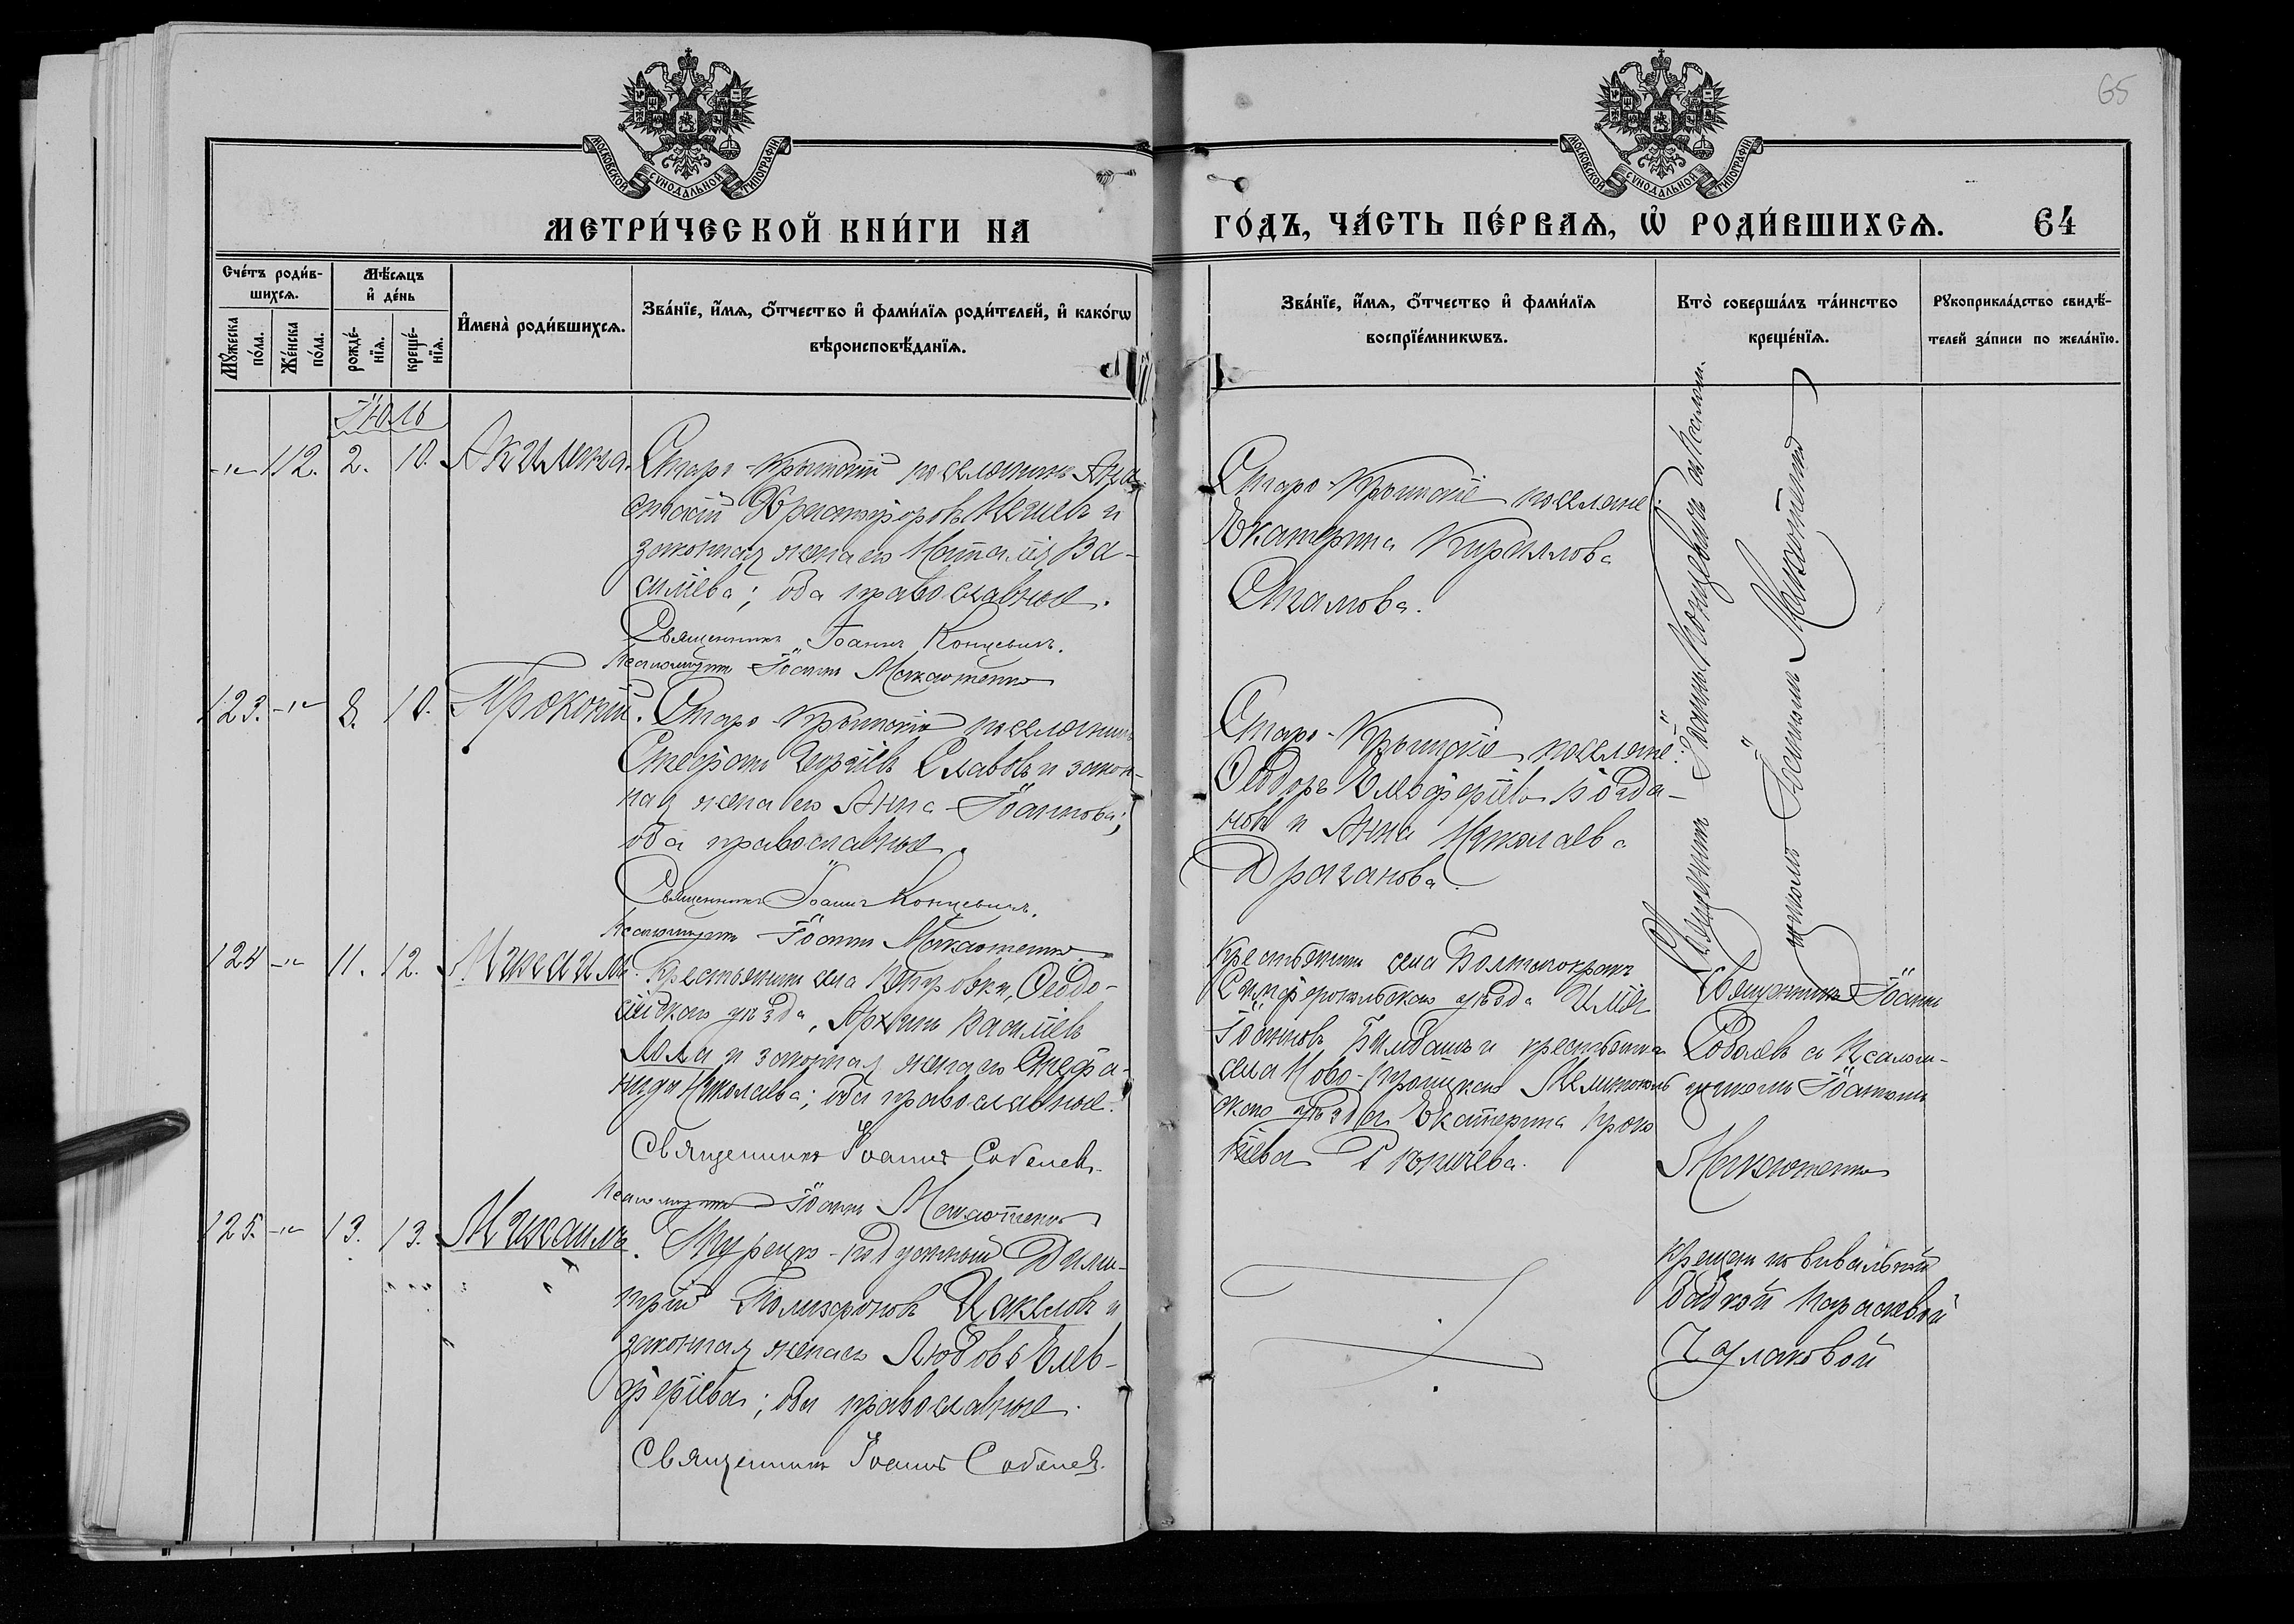 65
МОСКОВСКОЙ СѴНОДАЛЬНОЙ ТИПОГРАФІИ
МОСКОВСКОЙ СѴНОДАЛЬНОЙ ТИПОГРАФІИ
МЕТРИ́ЧЕСКОЙ КНИ́ГИ НА
ГО́ДЪ, ЧА́СТЬ ПЕ́РВАѦ, Ѽ РОДИ́ВШИХСѦ.
64
Сче́тъ роди́в-
шихсѧ.
Мꙋ́жеска
по́ла.
Же́нска
по́ла.
Мѣ́сѧцъ
и҆ де́нь
рожде́-
нїѧ.
креще́-
нїѧ.
И҆мена̀ роди́вшихсѧ.
Зва́нїе, и҆́мѧ, ѻ҆́тчество и҆ фами́лїѧ роди́телей, и҆ како́гѡ
вѣроисповѣ́данїѧ.
Зва́нїе, и҆́мѧ, ѻ҆́тчество и҆ фами́лїѧ
воспрїе́мникѡвъ.
Кто̀ соверша́лъ та́инство
креще́нїѧ.
Рꙋкоприкла́дство свидѣ́-
телей за́писи по жела́нїю.
Іюль
-"- 112. 2. 10. Акилина.
Старо-Крымскій поселянинъ Ана-
стасій Христофоровъ и
законная жена его Наталія Ва-
силіева; оба православные.
Священникъ Іоаннъ Концевичъ.
Псаломщикъ Іоаннъ
Старо-Крымскіе поселяне:
Екатерина Кириллова
Стамова.
Священникъ Іоаннъ Концевичъ съ Псалом-
щикомъ Іоанномъ
123. -"- 8. 10. Прокопій.
Старо-Крымскій поселянинъ
Стефанъ Георгіевъ Славовъ и закон-
ная жена его Анна Іоаннова;
оба православные.
Священникъ Іоаннъ Концевичъ.
Псаломщикъ Іоаннъ
Старо-Крымскіе поселяне:
Ѳеодоръ Елевферіевъ Богда-
новъ и Анна Николаева
Драганова.
124 -"- 11. 12. Михаилъ.
Крестьянинъ села Ѳеодо-
сійскаго уѣзда, Архипъ Василіевъ
Лола и законная жена его Стефа-
нида Николаева; оба православные.
Священникъ Іоаннъ Соболевъ.
Псаломщикъ Іоаннъ
Крестьянинъ села
Симферопольскаго уѣзда Илія
Іоанновъ и крестьянка
села Ново-Троицкаго Мелитополь
скаго уѣзда Екатерина Проко
піева
Священникъ Іоаннъ
Соболевъ съ Псалом-
щикомъ Іоанномъ
125. -"- 13. 13. Михаилъ.
Турецко-подданный Дими-
трій и
законная жена его Любовь Елев-
феріева; оба православные.
Священникъ Іоаннъ Соболевъ.
Крещенъ повивальной
бабкой Параскевой